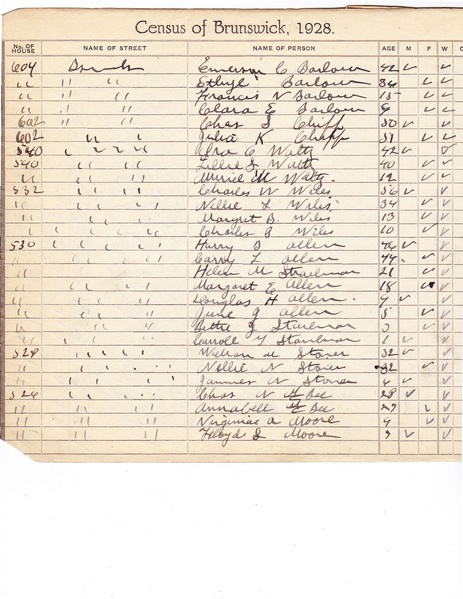 Census of Brunswick, 1928.
No. OF HOUSE NAME OF STREET NAME OF PERSON AGE M F W
604 Emerson C Barlow 42 ✓ ✓
" " " Ethyl Barlow 36 ✓ ✓
" " " Francis N Barlow 15 ✓ ✓
" " " Clara E Barlow ✓ ✓
602 " " Chas S Chipp 50 ✓ ✓
602 " " Julia K Chipp 51 ✓ ✓
540 " " C Waltz 42 ✓ ✓
540 " " Lillie J Waltz 40 ✓ ✓
" " " M Waltz 12 ✓ ✓
532 " " Charles W Wiles 56 ✓ ✓
" " " Nellie L Wiles 34 ✓ ✓
" " " Margret B. Wiles 13 ✓ ✓
" " " Charles B Wiles 10 ✓ ✓
530 " " Harry B Allen 46 ✓ ✓
" " " Carry L Allen 44 ✓ ✓
" " " Helen M 21 ✓ ✓
" " " Margaret E Allen 18 ✓ ✓
" " " Douglas H Allen ✓ ✓
" " " June J Allen 5 ✓ ✓
" " " Bettie J 3 ✓ ✓
" " " Carroll Y 1 ✓ ✓
528 " " William M Stoner 32 ✓ ✓
" " " Nellie N Stoner 32 ✓ ✓
" " " N Stoner ✓ ✓
526 " " Chas N Dee 28 ✓ ✓
" " " Annabell Dee 29 ✓ ✓
" " " Virginia A Moore ✓ ✓
" " " Floyd S Moore ✓ ✓